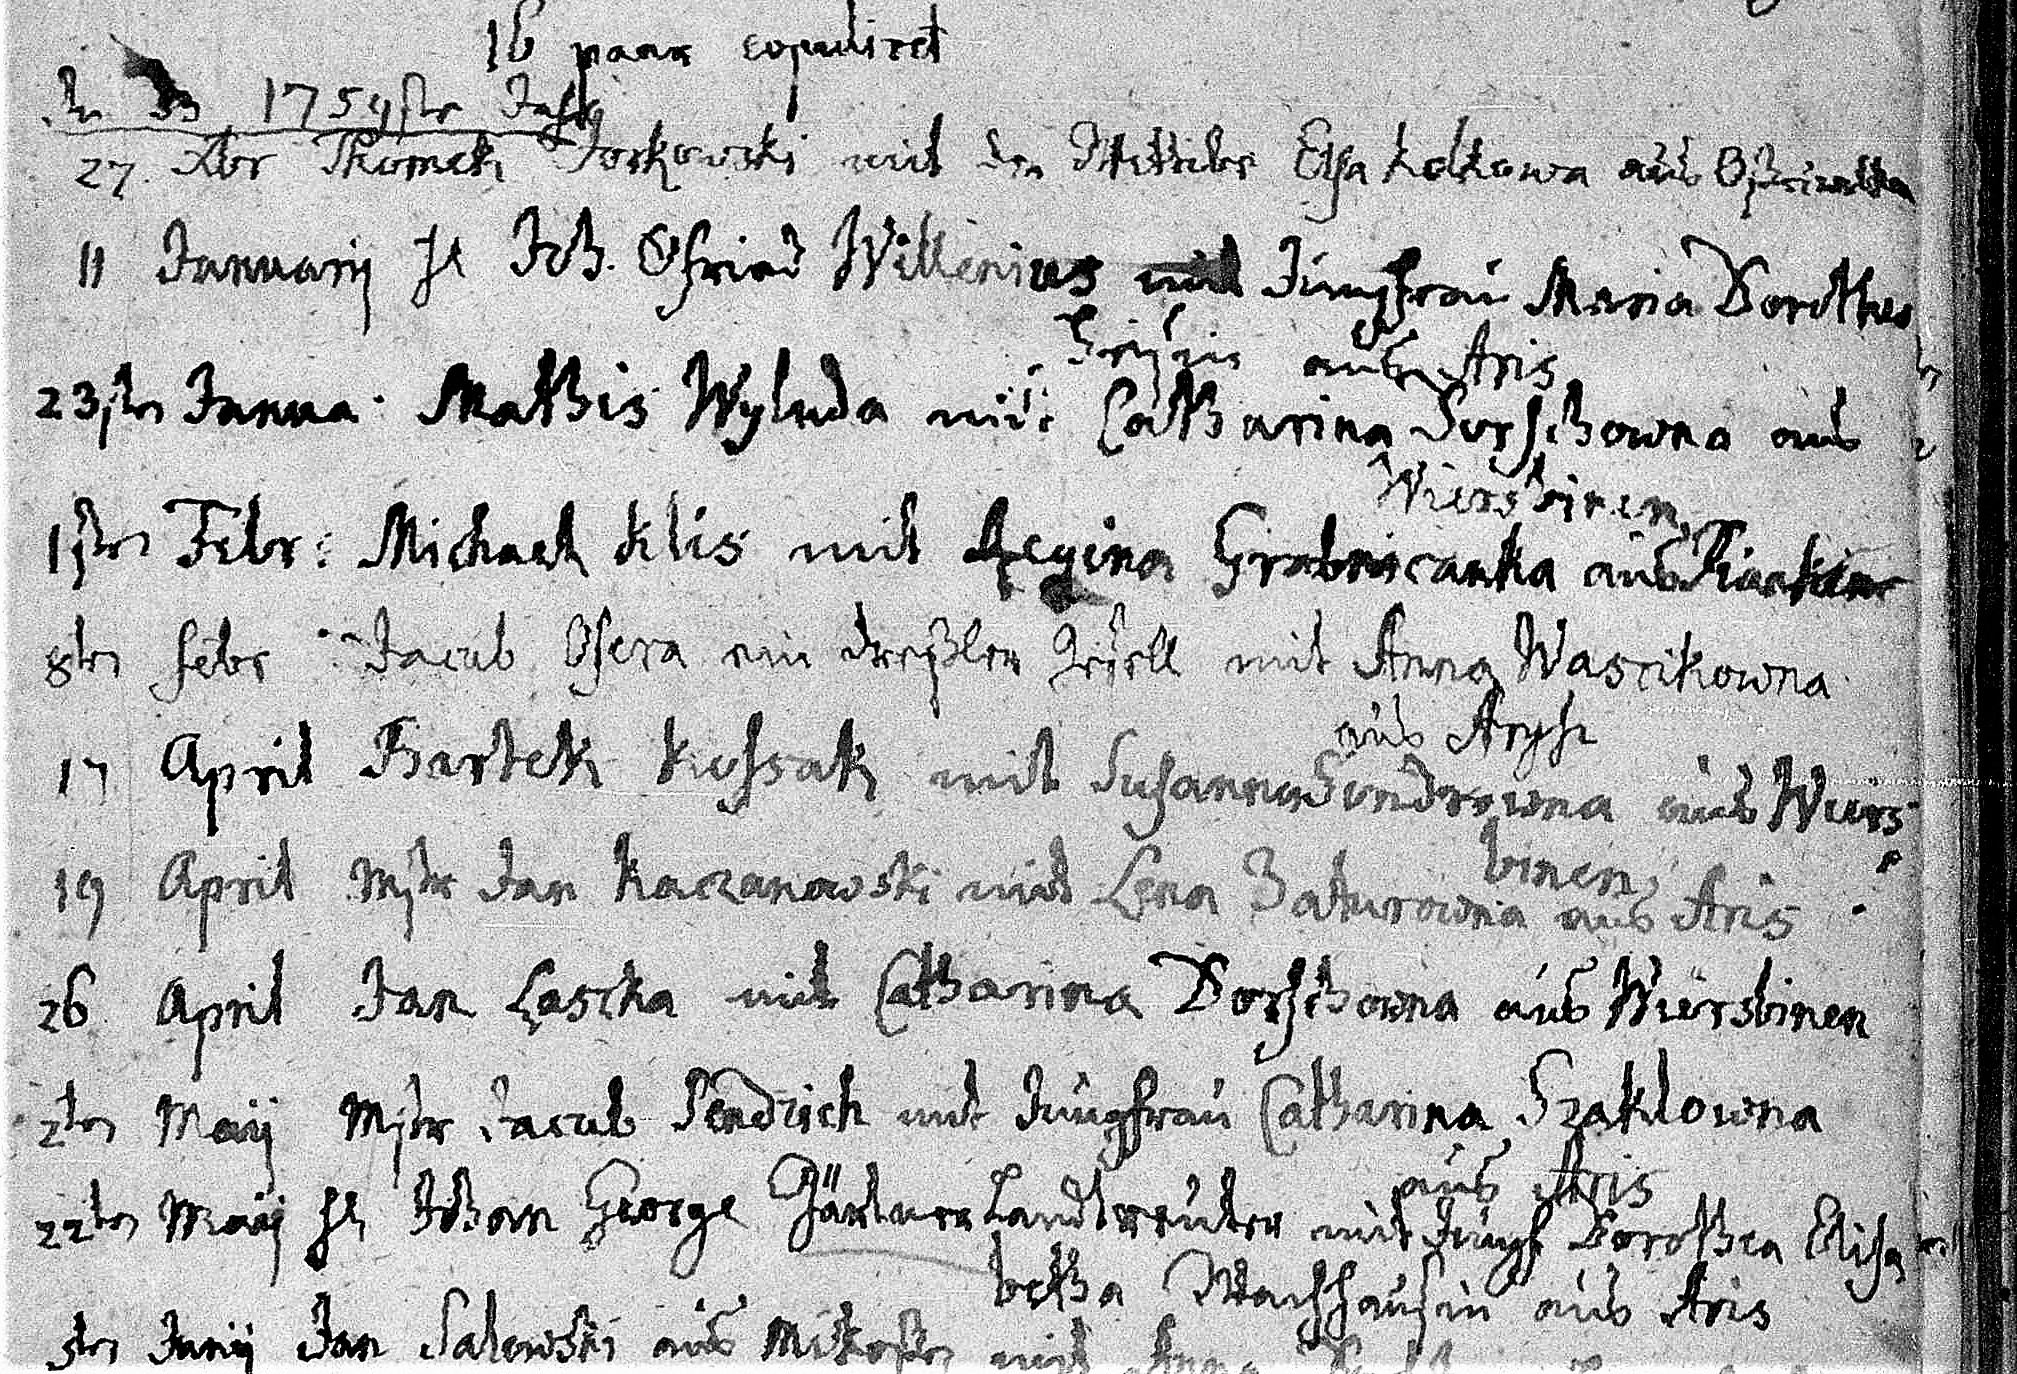 16 paar copuliret
In 1759ster Jahr
27 Xbr Thomek Joskowski mit der Wittibe Elsa Kolkowa aus
11 Januarij H Joh. Willenius mit Jungfrau Maria Dorothea
aus Aris
23sten Janua. Mathis Wyluda mit Catharina Dorschowna aus
Wiersbinen
1sten Febr: Michael Klis mit Regina Grabnicanka aus
8ten Febr Jacub Osera ein mit Anna Wascikowna
aus Arys
17 April Bartek Kossak mit Susanna aus Wiers
binen
19 April Mstr Jan Kaczanowski mit Lena Baturowna aus Aris
26 April Jan Lascka mit Catharina Dorschowna aus Wiersbinen
2ten Maij Mstr Jacub Sendzich mit Jungfrau Catharina Szaklowna
aus Aris
22ten Maij H Johan George Gärtner Landtreuter mit Jungf Dorothea Elisa
betha aus Aris
5ten Junij Jan Salewski aus mit Anna